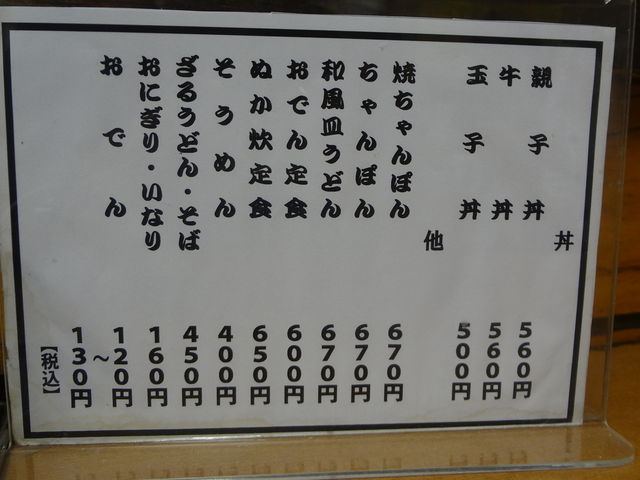 丼
親子丼 560円
牛丼 560円
玉子丼 500円
他
焼ちゃんぽん 670円
ちゃんぽん 670円
和風皿うどん 670円
おでん定食 600円
ぬか炊定食 650円
そうめん 400円
ざるうどん・そば 450円
おにぎり・いなり 160円
おでん 120円
～130円
【税込】